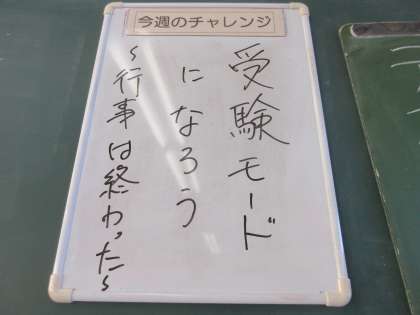 今週のチャレンジ
受験モード
になろう
～行事は終わった～